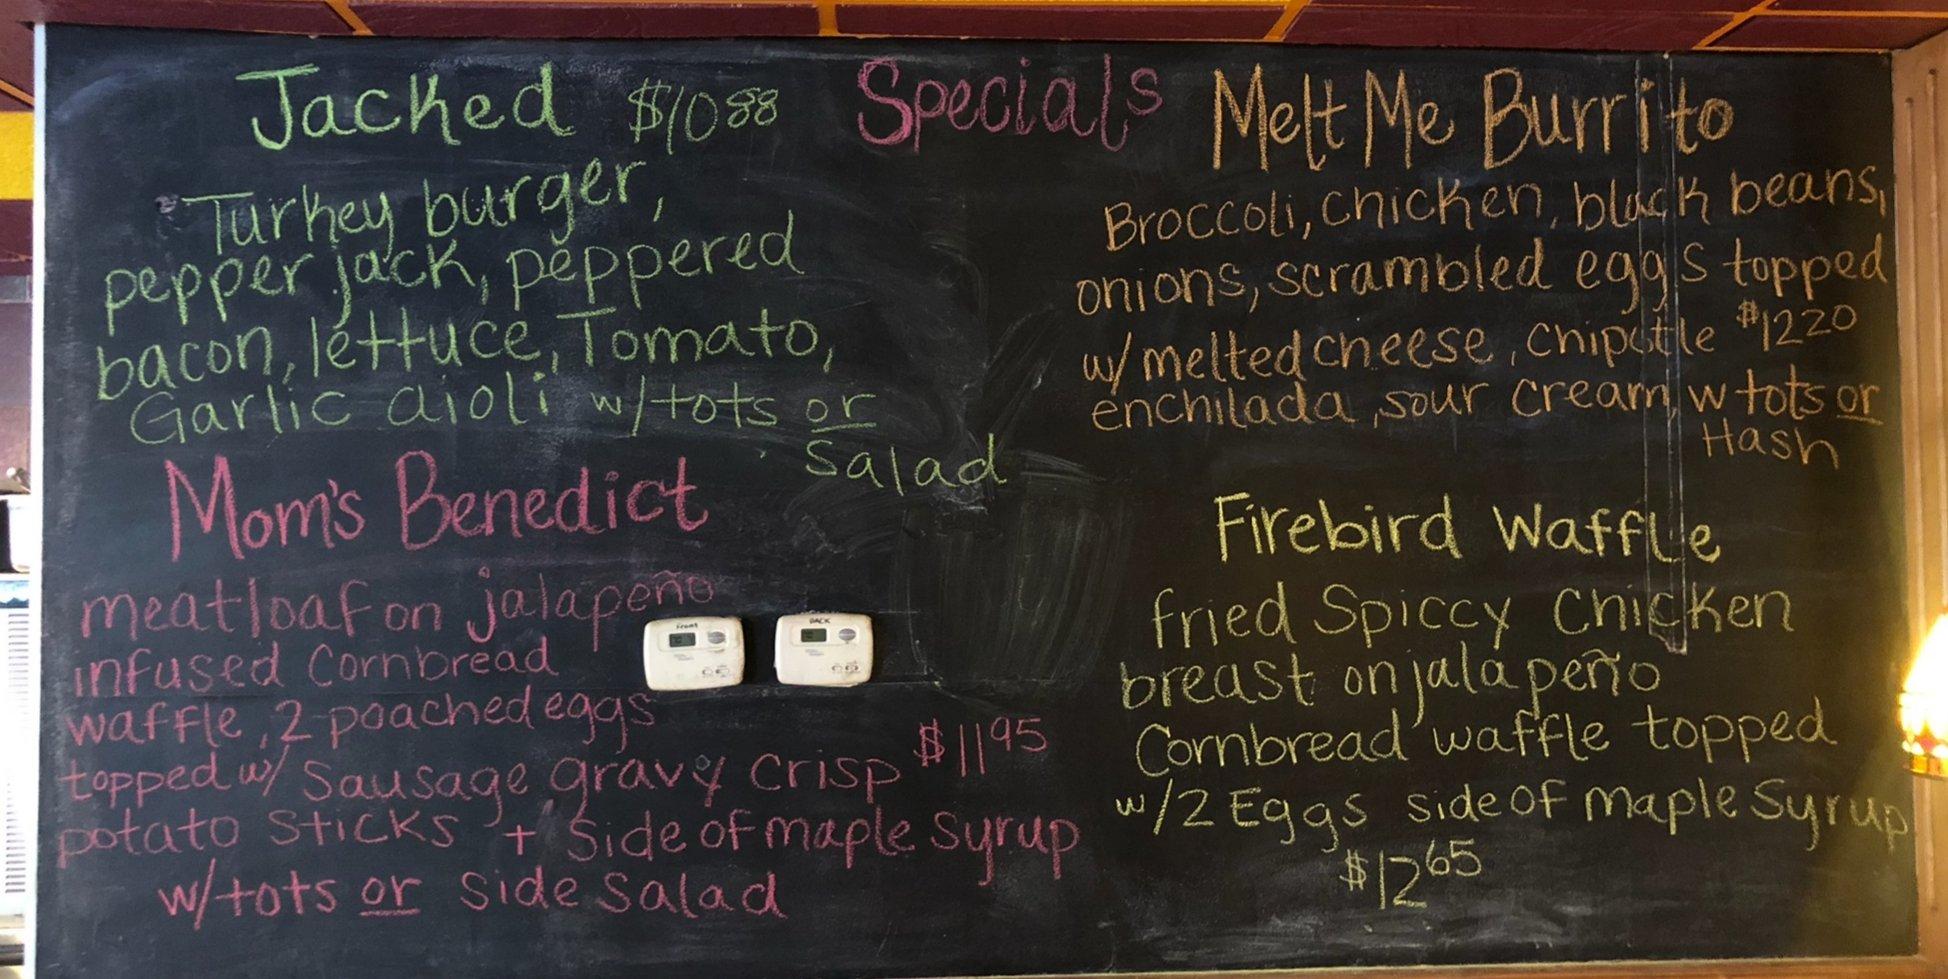 Specials
Jacked $10 88
Turkey burger,
pepper jack, peppered
bacon, lettuce, Tomato,
Garlic aioli w/tots or
Salad
Mom's Benedict
meatloaf on jalapeño
infused Cornbread
waffle, 2 poached eggs
topped w/ Sausage gravy crisp $11 95
potato sticks + side of maple syrup
w/tots or side salad
Melt Me Burrito
Broccoli, chicken, black beans,
onions, scrambled eggs topped
w/melted cheese, chipotle $12 20
enchilada, sour cream, w tots or
Hash
Firebird Waffle
fried Spiccy Chicken
breast on jalapeño
Cornbread waffle topped
w/2 Eggs side of maple syrup
$12 65
Front
BACK